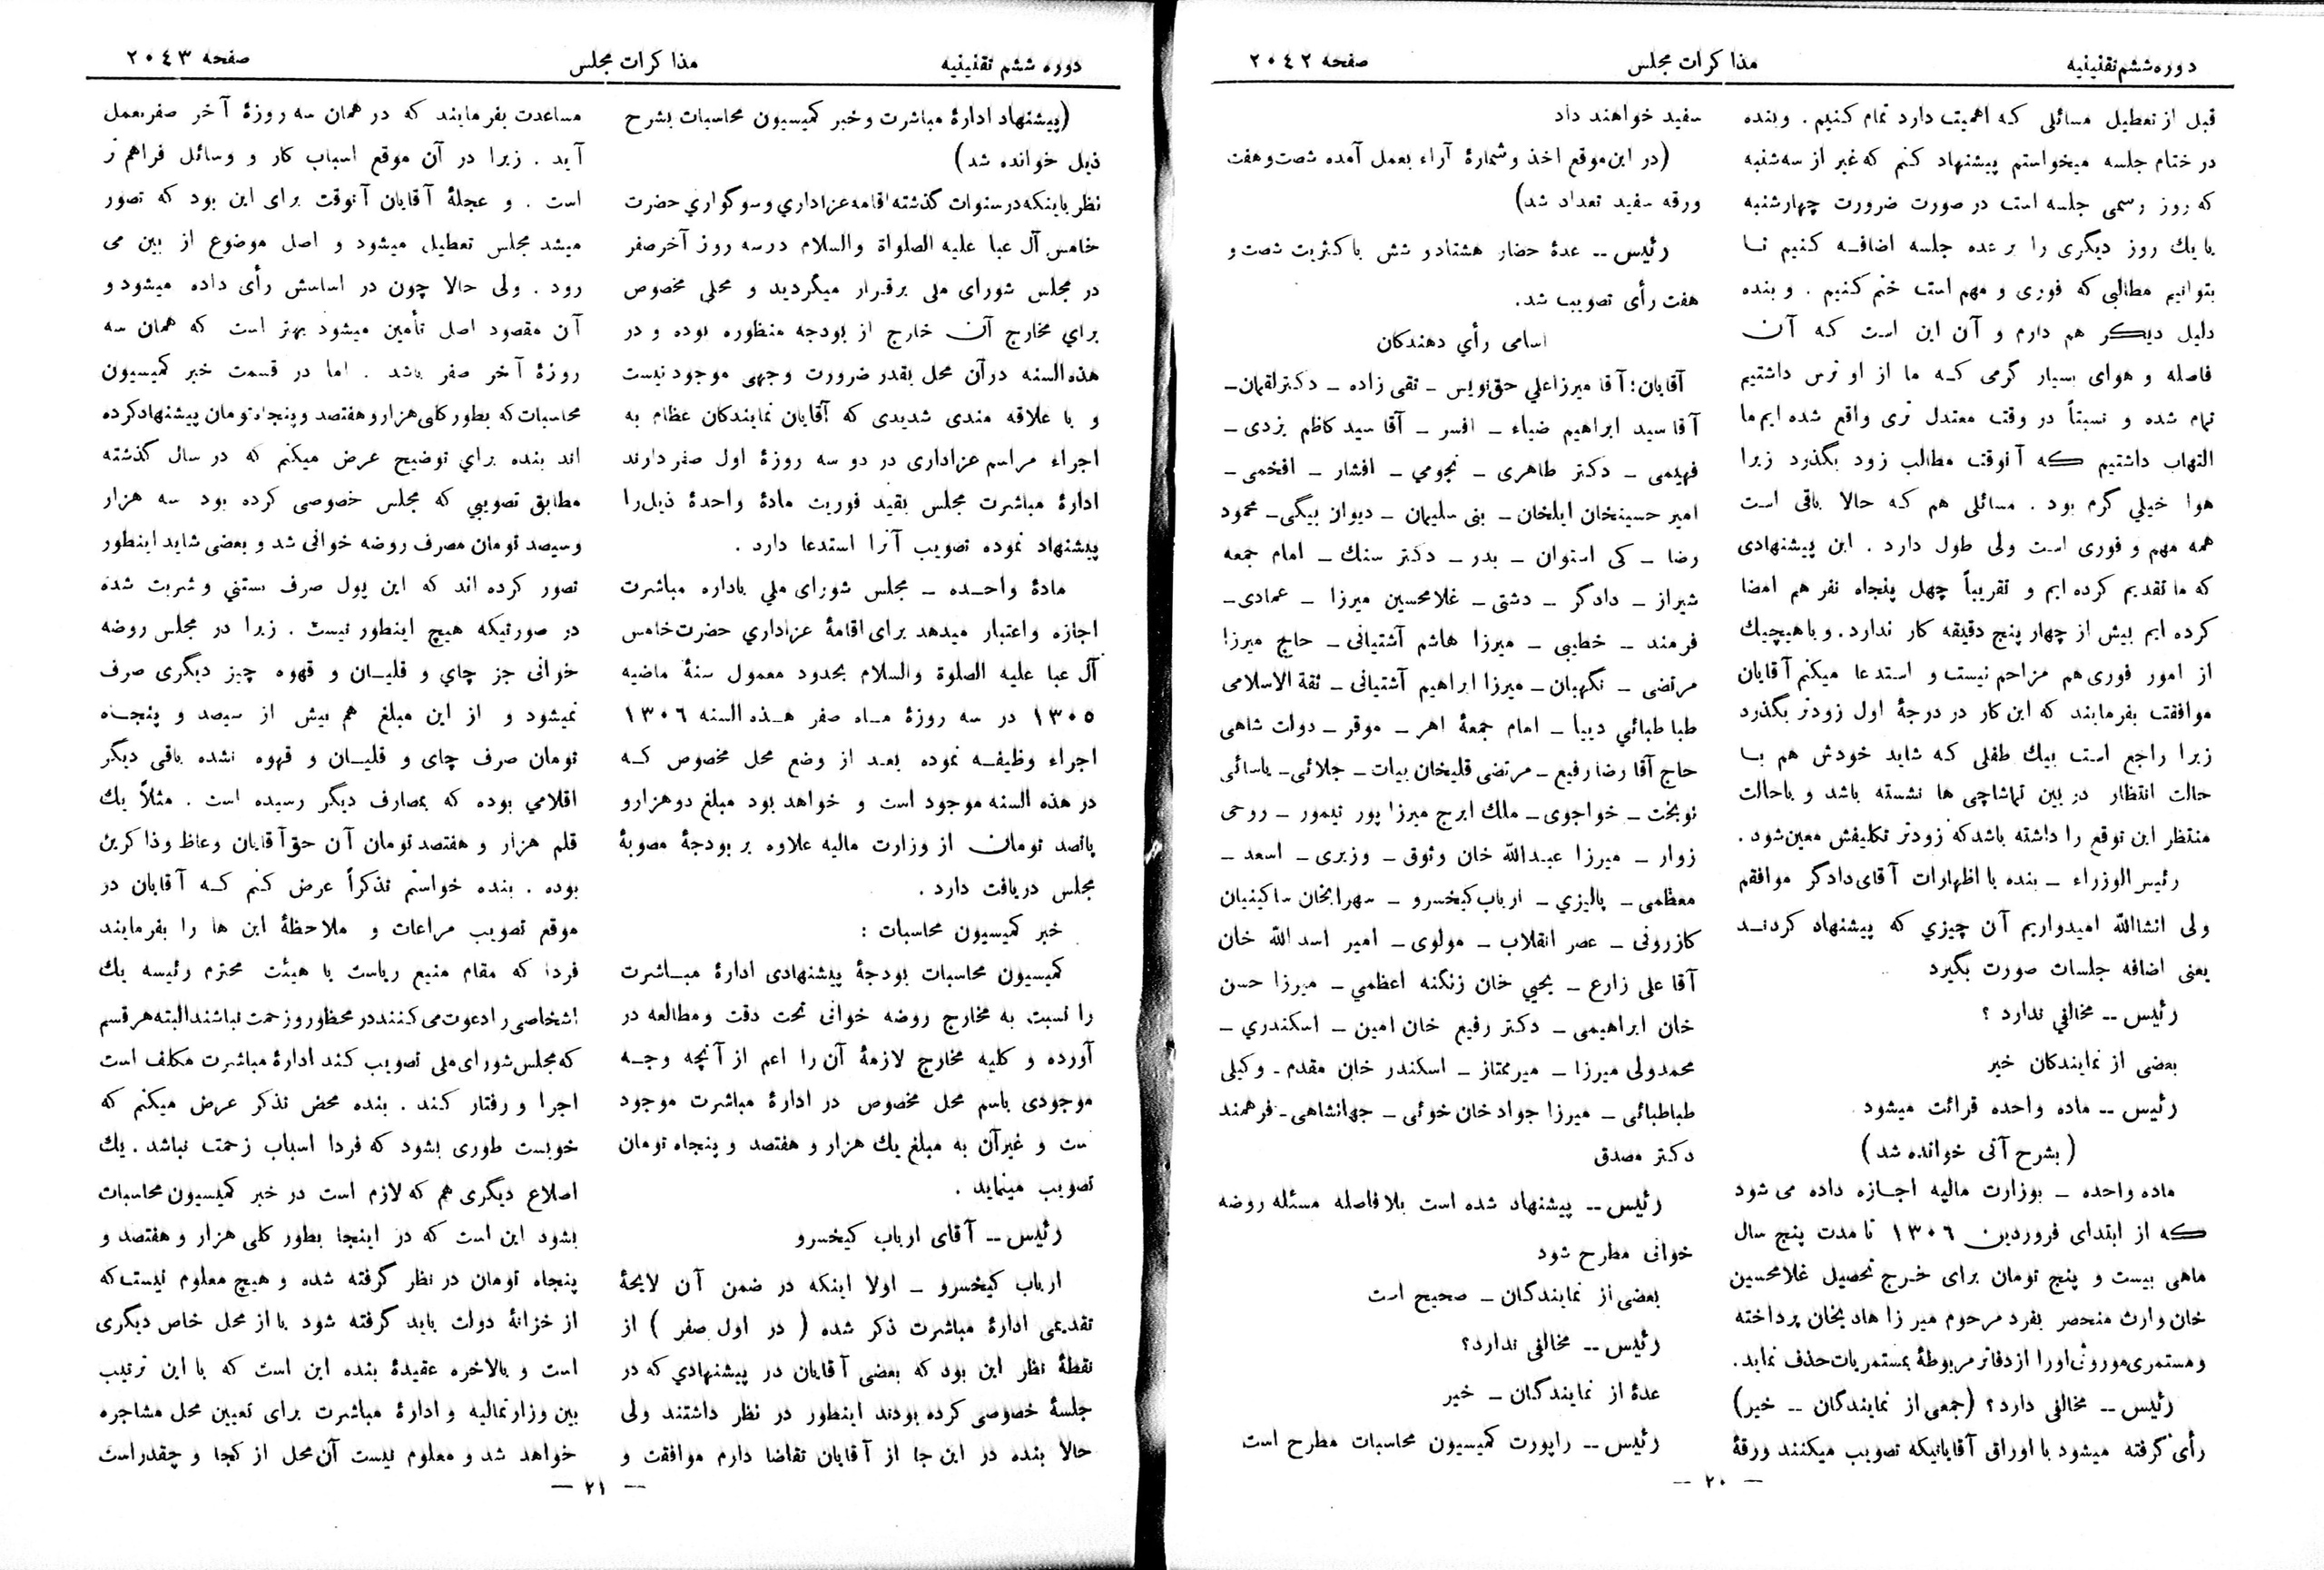 دوره ششم تقنینیه
مذاکرات مجلس
صفحه ٢٠٤٢
قبل از تعطیل مسائلی که اهمیت دارد تمام کنیم . و بنده
در ختام جلسه میخواستم پیشنهاد کنم که غیر از سه شنبه
که روز رسمی جلسه است در صورت ضرورت چهارشنبه
یا یك روز دیگری را بر عده جلسه اضافه کنیم تا
بتوانیم مطالبی که فوری و مهم است ختم کنیم . و بنده
دلیل دیگر هم دارم و آن این است که آن
فاصله و هوای بسیار گرمی که ما از او ترس داشتیم
تمام شده و نسبتاً در وقت معتدل تری واقع شده ایم ما
التهاب داشتیم که آنوقت مطالب زود بگذرد زیرا
هوا خیلي گرم بود . مسائلی هم که حالا باقی است
همه مهم و فوری است ولی طول دارد . این پیشنهادی
که ما تقدیم کرده ایم و تقریباً چهل پنجاه نفر هم امضا
کرده ایم بیش از چهار پنج دقیقه کار ندارد . و با هیچیك
از امور فوری هم مزاحم نیست و استدعا میکنم آقایان
موافقت بفرمایند که این کار در درجهٔ اول زودتر بگذرد
زیرا راجع است بیك طفلی که شاید خودش هم با
حالت انتظار در بین تماشاچی ها نشسته باشد و باحالت
منتظر این توقع را داشته باشد که زودتر تکلیفش معین شود .
رئیس الوزراء ـ بنده با اظهارات آقای دادگر موافقم
ولی انشاالله امیدواریم آن چیزي که پیشنهاد کردند
یعنی اضافه جلسات صورت بگیرد
رئیس -- مخالفي ندارد ؟
بعضی از نمایندکان خیر
رئیس -- ماده واحده قرائت میشود
( بشرح آتی خوانده شد )
ماده واحده ـ بوزارت مالیه اجازه داده می شود
که از ابتدای فروردین ١٣٠٦ تا مدت پنج سال
ماهی بیست و پنج تومان برای خرج تحصیل غلامحسین
خان وارث منحصر بفرد مرحوم میرزا هادیخان پرداخته
و مستمری موروثی اورا از دفاتر مربوطهٔ بمستمریات حذف نماید .
رئیس -- مخالفی دارد ؟ (جمعی از نمایندگان -- خیر)
رأی گرفته میشود با اوراق آقایانیکه تصویب میکنند ورقهٔ
سفید خواهند داد
(در این موقع اخذ و شمارهٔ آراء بعمل آمده شصت و هفت
ورقه سفید تعداد شد)
رئیس -- عدهٔ حضار هشتاد و شش با کثریت شصت و
هفت رأی تصویب شد .
اسامی رأي دهندکان
آقایان : آقا میرزا علي حق نویس ـ تقی زاده ـ دکتر لقمان ـ
آقا سید ابراهیم ضیاء ـ افسر ـ آقا سید کاظم یزدی ـ
فهیمی ـ دکتر طاهری ـ نجومي ـ افشار ـ افخمی ـ
امیر حسینخان ایلخان ـ بنی سلیمان ـ دیوان بیگی ـ محمود
رضا ـ کی استوان ـ بدر ـ دکتر سنك ـ امام جمعه
شیراز ـ دادگر ـ دشتی ـ غلامحسین میرزا ـ عمادی ـ
فرمند ـ خطیبی ـ میرزا هاشم آشتیانی ـ حاج میرزا
مرتضی ـ نگهبان ـ میرزا ابراهیم آشتیانی ـ ثقة الاسلامی
طباطبائي دیبا ـ امام جمعهٔ اهر ـ موقر ـ دولت شاهی
حاج آقا رضا رفیع ـ مرتضی قلیخان بیات ـ جلائی ـ یاسائی
نوبخت ـ خواجوی ـ ملك ایرج میرزا پور تیمور ـ روحی
زوار ـ میرزا عبدالله خان وثوق ـ وزیری ـ اسعد ـ
معظمی ـ پالیزي ـ ارباب کیخسرو ـ سهرابخان ساکینیان
کازرونی ـ عصر انقلاب ـ مولوی ـ امیر اسد الله خان
آقا علی زارع ـ یحیي خان زنگنه اعظمي ـ میرزا حسن
خان ابراهیمی ـ دکتر رفیع خان امین ـ اسکندري ـ
محمدولی میرزا ـ میرممتاز ـ اسکندر خان مقدم ـ وکیلی
طباطبائی ـ میرزا جواد خان خوئی ـ جهانشاهی ـ فرهمند
دکتر مصدق
رئیس -- پیشنهاد شده است بلافاصله مسئله روضه
خوانی مطرح شود
بعضی از نمایندگان ـ صحیح است
رئیس -- مخالفی ندارد؟
عدهٔ از نمایندگان ـ خیر
رئیس -- راپورت کمیسیون محاسبات مطرح است
— ٢٠ —
دوره ششم تقنینیه
مذاکرات مجلس
صفحه ٢٠٤٣
(پیشنهاد ادارهٔ مباشرت و خبر کمیسیون محاسبات بشرح
ذیل خوانده شد)
نظر باینکه در سنوات گذشته اقامه عزاداري و سوگواري حضرت
خامس آل عبا علیه الصلواة والسلام در سه روز آخر صفر
در مجلس شورای ملی برقرار میگردید و محلی مخصوص
براي مخارج آن خارج از بودجه منظوره بوده و در
هذه السنه درآن محل بقدر ضرورت وجهی موجود نیست
و با علاقه مندی شدیدی که آقایان نمایندکان عظام به
اجراء مراسم عزاداری در دو سه روزهٔ اول صفر دارند
ادارهٔ مباشرت مجلس بقید فوریت مادهٔ واحدهٔ ذیل را
پیشنهاد نموده تصویب آنرا استدعا دارد .
مادهٔ واحده ـ مجلس شورای ملي باداره مباشرت
اجازه واعتبار میدهد برای اقامهٔ عزاداري حضرت خامس
آل عبا علیه الصلوة والسلام بحدود معمول سنهٔ ماضیه
١٣٠٥ در سه روزهٔ ماه صفر هذه السنه ١٣٠٦
اجراء وظیفه نموده بعد از وضع محل مخصوص که
در هذه السنه موجود است و خواهد بود مبلغ دو هزار و
پانصد تومان از وزارت مالیه علاوه بر بودجهٔ مصوبهٔ
مجلس دریافت دارد .
خبر کمیسیون محاسبات :
کمیسیون محاسبات بودجهٔ پیشنهادی ادارهٔ مباشرت
را نسبت به مخارج روضه خوانی تحت دقت و مطالعه در
آورده و کلیه مخارج لازمهٔ آن را اعم از آنچه وجه
موجودی باسم محل مخصوص در ادارهٔ مباشرت موجود
ست و غیرآن به مبلغ یك هزار و هفتصد و پنجاه تومان
تصویب مینماید .
رئیس -- آقای ارباب کیخسرو
ارباب کیخسرو ـ اولا اینکه در ضمن آن لایحهٔ
تقدیمی ادارهٔ مباشرت ذکر شده ( در اول صفر ) از
نقطهٔ نظر این بود که بعضی آقایان در پیشنهادي که در
جلسهٔ خصوصی کرده بودند اینطور در نظر داشتند ولی
حالا بنده در این جا از آقایان تقاضا دارم موافقت و
مساعدت بفرمایند که در همان سه روزهٔ آخر صفر بعمل
آید . زیرا در آن موقع اسباب کار و وسائل فراهم تر
است . و عجلهٔ آقایان آنوقت برای این بود که تصور
میشد مجلس تعطیل میشود و اصل موضوع از بین می
رود . ولی حالا چون در اساسش رأی داده میشود و
آن مقصود اصل تأمین میشود بهتر است که همان سه
روزهٔ آخر صفر باشد . اما در قسمت خبر کمیسیون
محاسبات که بطور کلی هزار و هفتصد و پنجاه تومان پیشنهاد کرده
اند بنده براي توضیح عرض میکنم که در سال گذشته
مطابق تصویبي که مجلس خصوصی کرده بود سه هزار
و سیصد تومان مصرف روضه خوانی شد و بعضی شاید اینطور
تصور کرده اند که این پول صرف بستني و شربت شده
در صورتیکه هیچ اینطور نیست . زیرا در مجلس روضه
خوانی جز چاي و قلیان و قهوه چیز دیگری صرف
نمیشود و از این مبلغ هم بیش از سیصد و پنجاه
تومان صرف چای و قلیان و قهوه نشده باقی دیگر
اقلامي بوده که بمصارف دیگر رسیده است . مثلاً یك
قلم هزار و هفتصد تومان آن حق آقایان وعاظ وذاکرین
بوده . بنده خواستم تذکراً عرض کنم که آقایان در
موقع تصویب مراعات و ملاحظهٔ این ها را بفرمایند
فردا که مقام منیع ریاست با هیئت محترم رئیسه یك
اشخاصی را دعوت می کنند در محظور و زحمت نباشند البته هر قسم
که مجلس شورای ملی تصویب کند ادارهٔ مباشرت مکلف است
اجرا و رفتار کند . بنده محض تذکر عرض میکنم که
خوبست طوری بشود که فردا اسباب زحمت نباشد . یك
اصلاع دیگری هم که لازم است در خبر کمیسیون محاسبات
بشود این است که در اینجا بطور کلی هزار و هفتصد و
پنجاه تومان در نظر گرفته شده و هیچ معلوم نیست که
از خزانهٔ دولت باید گرفته شود یا از محل خاص دیگری
است و بالاخره عقیدهٔ بنده این است که با این ترتیب
بین وزارتمالیه و ادارهٔ مباشرت برای تعیین محل مشاجره
خواهد شد و معلوم نیست آن محل از کجا و چقدر است
— ٢١ —